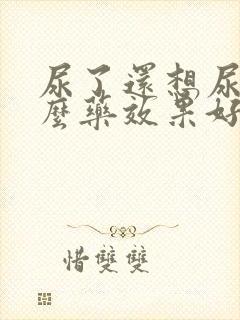 尿了還想尿
麼藥效果好
惜雙雙